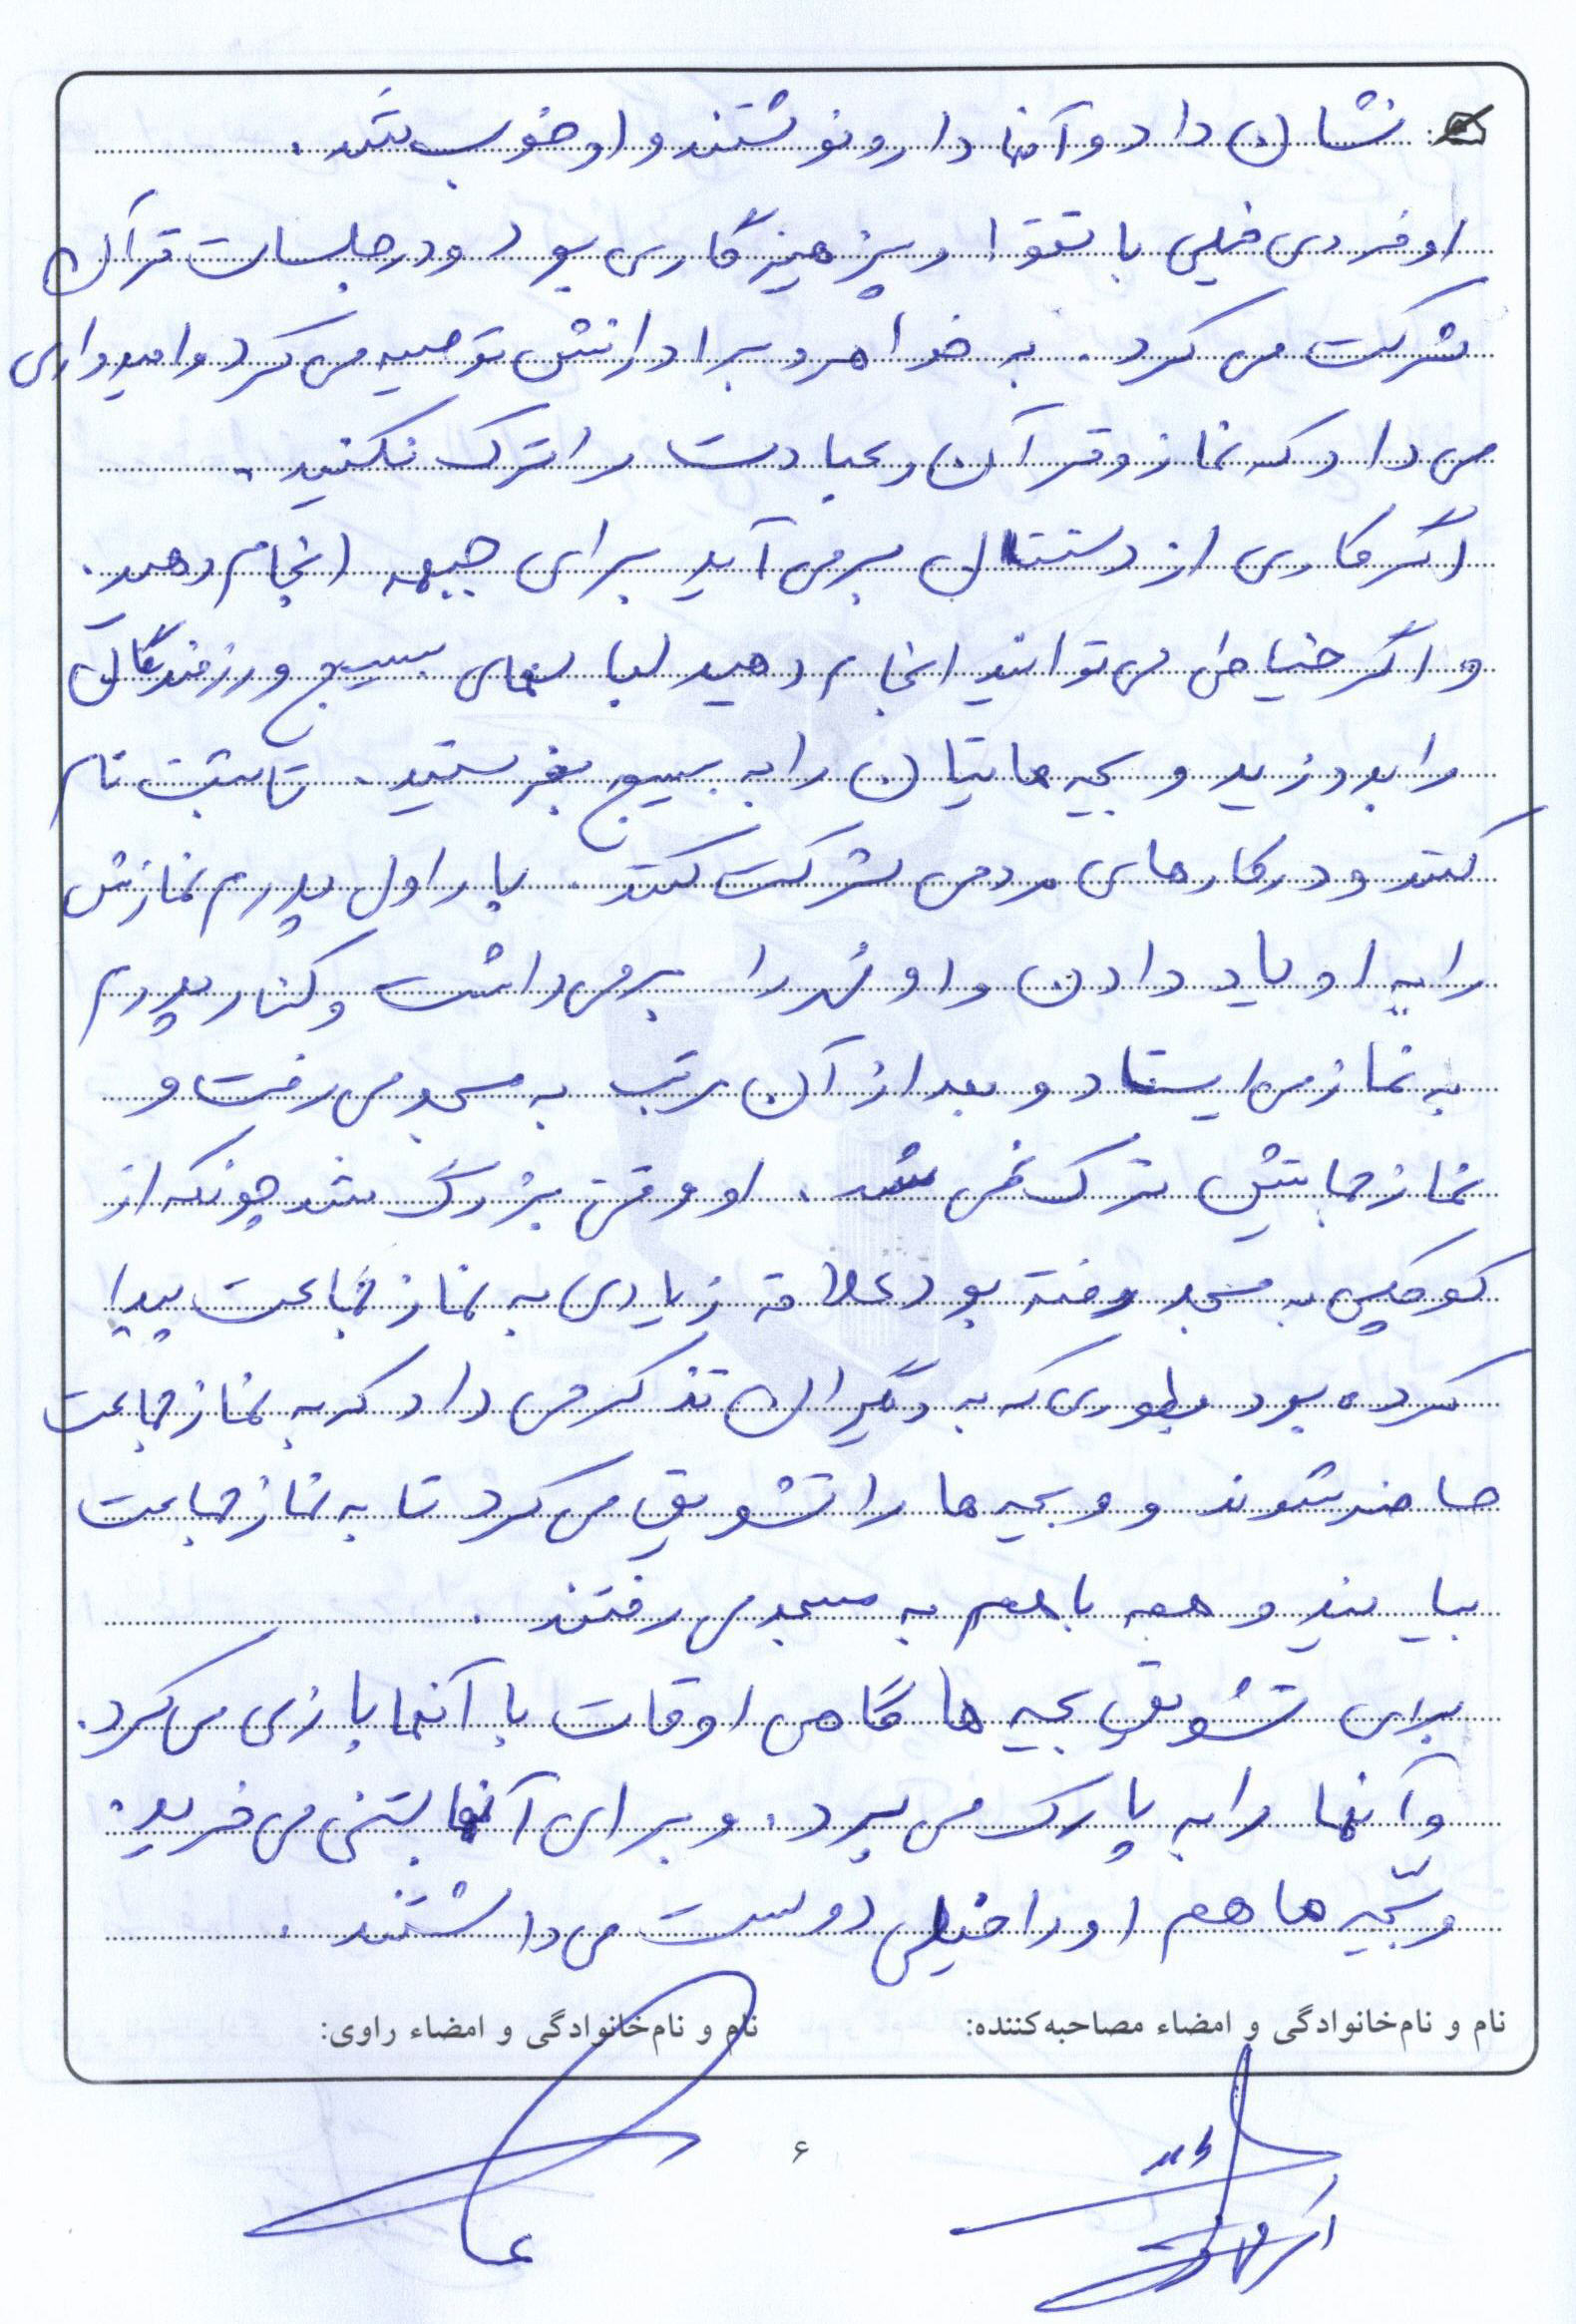 نشان داد و آنها دارو نوشتند و او خوب شد.
او فردی خیلی با تقوا و پرهیزگاری بود و در جلسات قرآن
شرکت می کرد. به خواهر و برادرانش توصیه می کرد و امیدواری
می داد که نماز و قرآن و عبادت را ترک نکنید.
اگر کاری از دستتان برمی آید برای جبهه انجام دهید.
و اگر خیاطی می توانید انجام دهید لباسهای بسیج و رزمندگان
را بدوزید و بچه هایتان را به بسیج بفرستید. تا ثبت نام
کنند و در کارهای مردمی شرکت کنند. بار اول پدرم نمازش
را به او یاد دادن و او مهر را برمی داشت و کنار پدرم
به نماز می ایستاد و بعد از آن مرتب به مسجد می رفت و
نماز جماعتش ترک نمی شد. او وقتی بزرگ شد چونکه از
کوچکی به مسجد رفته بود علاقه زیادی به نماز جماعت پیدا
کرده بود بطوری که به دیگران تذکر می داد که به نماز جماعت
حاضر شوند و و بچه ها را تشویق می کرد تا به نماز جماعت
بیایند و همه با هم به مسجد می رفتند.
برای تشویق بچه ها گاهی اوقات با آنها بازی می کرد.
و آنها را به پارک می برد. و برای آنها بستنی می خرید.
و بچه ها هم او را خیلی دوست می داشتند.
نام و نام‌خانوادگی و امضاء مصاحبه‌کننده: نام و نام‌خانوادگی و امضاء راوی:
۶